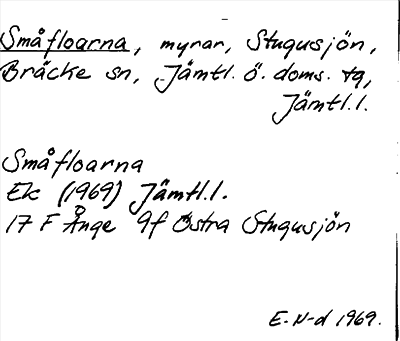 Småfloarna, myrar, Stugusjön,
Bräcke sn, Jämtl. ö. doms. tg,
Jämtl.l.
Småfloarna
Ek (1969) Jämtl.l.
17 F Ånge 9f Östra Stugusjön
E. N-d 1969.